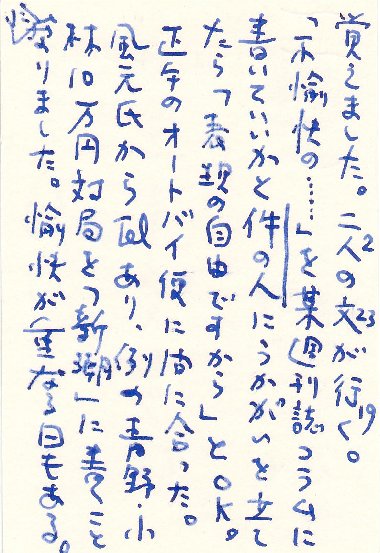 覚えました。二人の文が行く。
2 23 19
「不愉快の……」を某週刊誌コラムに
書いていいかと件の人にうかがいを立て
たら「表現の自由ですから」とOK。
正午のオートバイ便に間に合った。
風元氏からTELあり、例の青野・小
林10万円対局を「新潮」に書くこと
なりました。愉快が重なる日もある。